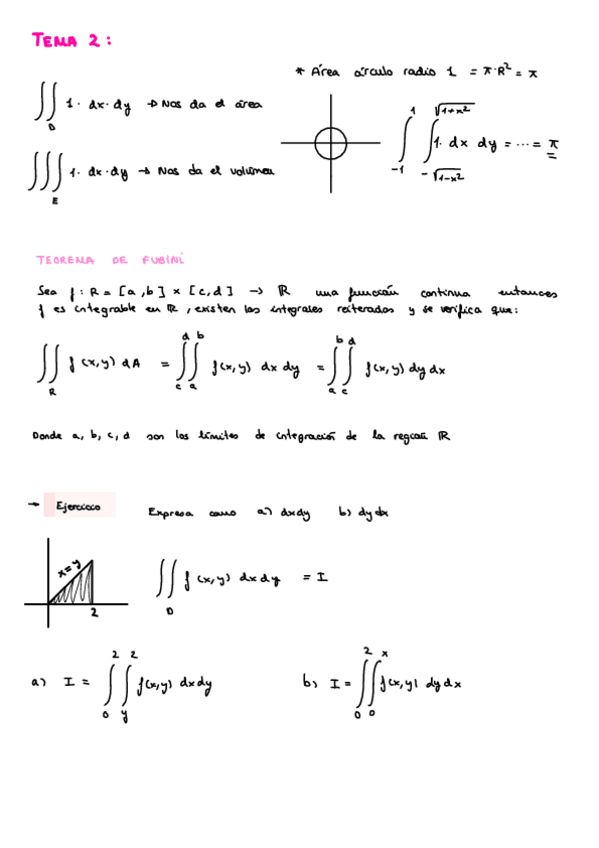 TEMA 2:
* Área círculo radio 1 = π·R² = π
∬_D 1· dx· dy → Nos da el área
∫_{-1}^{1} ∫_{-√(1-x²)}^{√(1+x²)} 1· dx dy = ··· = π
∭_E 1· dx·dy → Nos da el volumen
TEOREMA DE FUBINI
Sea f: R = [a,b] x [c,d] → ℝ una función continua entonces
f es integrable en ℝ, existen las integrales reiteradas y se verifica que:
∬_R f(x,y) dA = ∫_c^d ∫_a^b f(x,y) dx dy = ∫_a^b ∫_c^d f(x,y) dy dx
Donde a, b, c, d son los límites de integración de la región ℝ
→ Ejercicio Expresa como a) dxdy b) dydx
x=y
2
∬_D f(x,y) dxdy = I
a) I = ∫_0^2 ∫_y^2 f(x,y) dxdy
b) I = ∫_0^2 ∫_0^x f(x,y) dydx